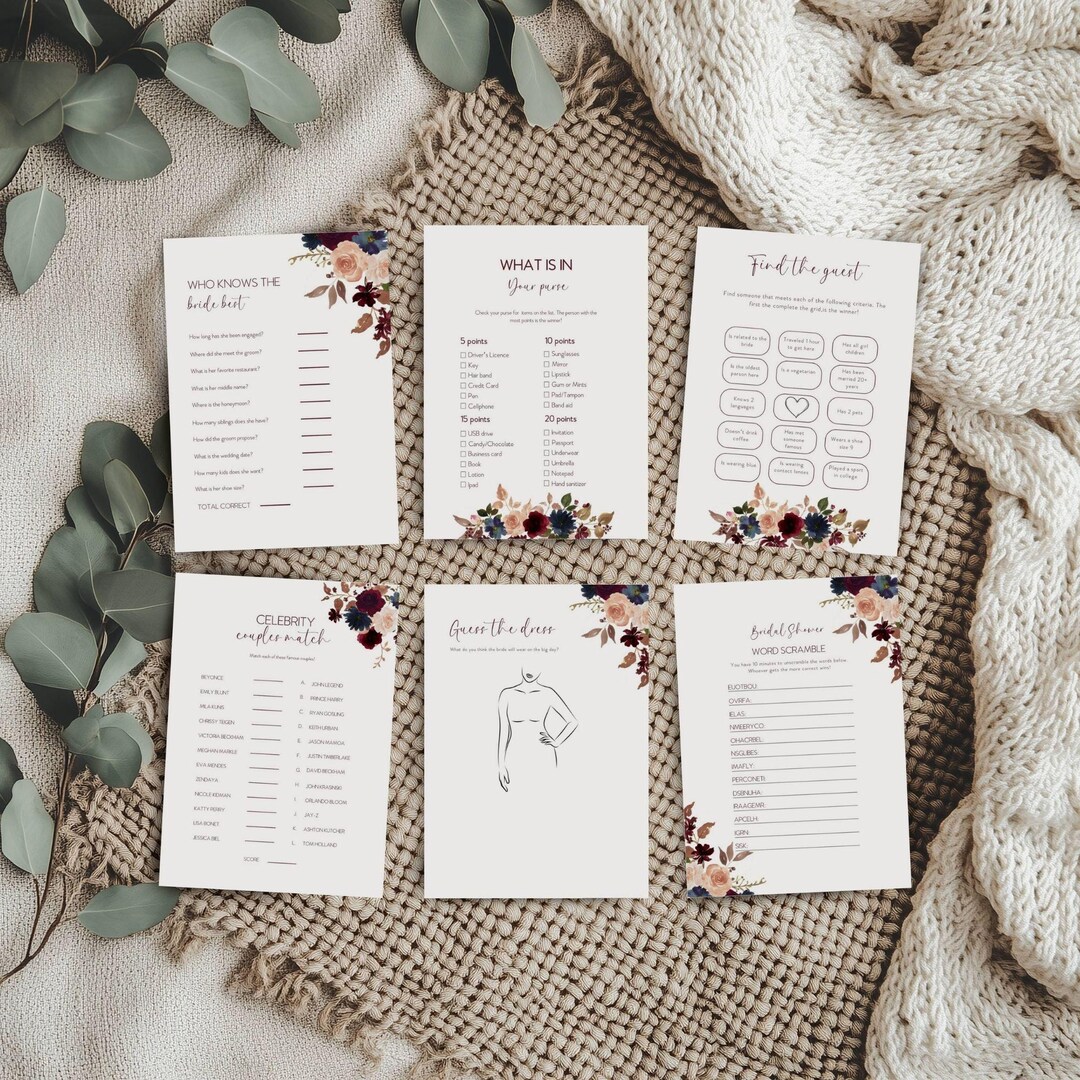 WHO KNOWS THE
bride best
How long has she been engaged?
Where did she meet the groom?
What is her favorite restaurant?
What is her middle name?
Where is the honeymoon?
How many siblings does she have?
How did the groom propose?
What is the wedding date?
How many kids does she want?
What is her shoe size?
TOTAL CORRECT
WHAT IS IN
Your purse
Check your purse for items on the list. The person with the
most points is the winner!
5 points
Driver's Licence
Key
Hair band
Credit Card
Pen
Cellphone
10 points
Sunglasses
Mirror
Lipstick
Gum or Mints
Pad/Tampon
Band aid
15 points
USB drive
Candy/Chocolate
Business card
Book
Lotion
Ipad
20 points
Invitation
Passport
Underwear
Umbrella
Notepad
Hand sanitizer
Find the guest
Find someone that meets each of the following criteria. The
first the complete the grid,is the winner!
Is related to the
bride
Traveled 1 hour
to get here
Has all girl
children
Is the oldest
person here
Is a vegetarian
Has been
married 20+
years
Knows 2
languages
Has 2 pets
Doesn't drink
coffee
Has met
someone
famous
Wears a shoe
size 9
Is wearing blue
Is wearing
contact lenses
Played a sport
in college
CELEBRITY
couples match
Match each of these famous couples!
BEYONCE
EMILY BLUNT
MILA KUNIS
CHRISSY TEIGEN
VICTORIA BECKHAM
MEGHAN MARKLE
EVA MENDES
ZENDAYA
NICOLE KIDMAN
KATTY PERRY
LISA BONET
JESSICA BIEL
A. JOHN LEGEND
B. PRINCE HARRY
C. RYAN GOSLING
D. KEITH URBAN
E. JASON MAMOA
F. JUSTIN TIMBERLAKE
G. DAVID BECKHAM
H. JOHN KRASINSKI
I. ORLANDO BLOOM
J. JAY-Z
K. ASHTON KUTCHER
L. TOM HOLLAND
SCORE
Guess the dress
What do you think the bride will wear on the big day?
Bridal Shower
WORD SCRAMBLE
You have 10 minutes to unscramble the words below.
Whoever gets the more correct wins!
EUOTBQU:
OVRFA:
IELAS:
NMEERYCO:
OHACRBEL:
NSGLIBES:
IMAFLY:
PERCONETI:
DSBNUHA:
IRAAGEMR:
APCELH:
IQRN:
SISK: